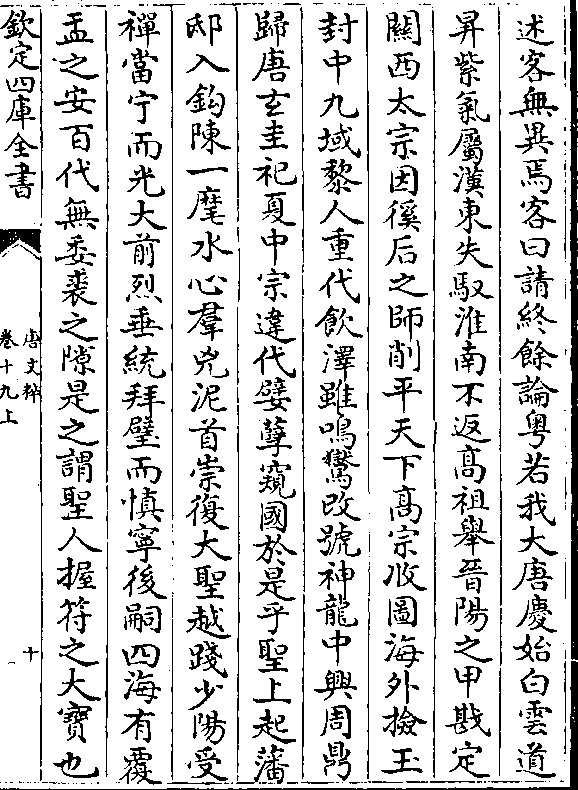 述客無異焉客曰請終餘論粤若我大唐慶始白雲道
昇紫氣屬漢東失馭淮南不返髙祖舉晉陽之甲戡定
關西太宗因徯后之師削平天下髙宗收圖海外撿玉
封中九域黎人重代飲澤雖鳴鸞改號神龍中興周鼎
歸唐玄圭祀夏中宗違代嬖孽窺國於是乎聖上起藩
邸入鈎陳一麾水心羣兇泥首崇復大聖越踐少陽受
禪當宁而光大前烈垂統拜璧而慎寧後嗣四海有覆
盂之安百代無委裘之隙是之謂聖人握符之大寶也
欽定四庫全書
唐文粹
卷十九上
十